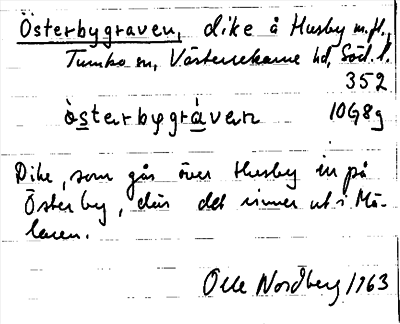 Österbygraven, dike å Husby m.fl.,
Tumbo sn, Västerrekarne hd, Söd. l.
352
òsterbygràven 10G8g
Dike, som går över Husby in på
Österby, där det rinner ut i Mä-
laren.
Olle Nordberg 1963